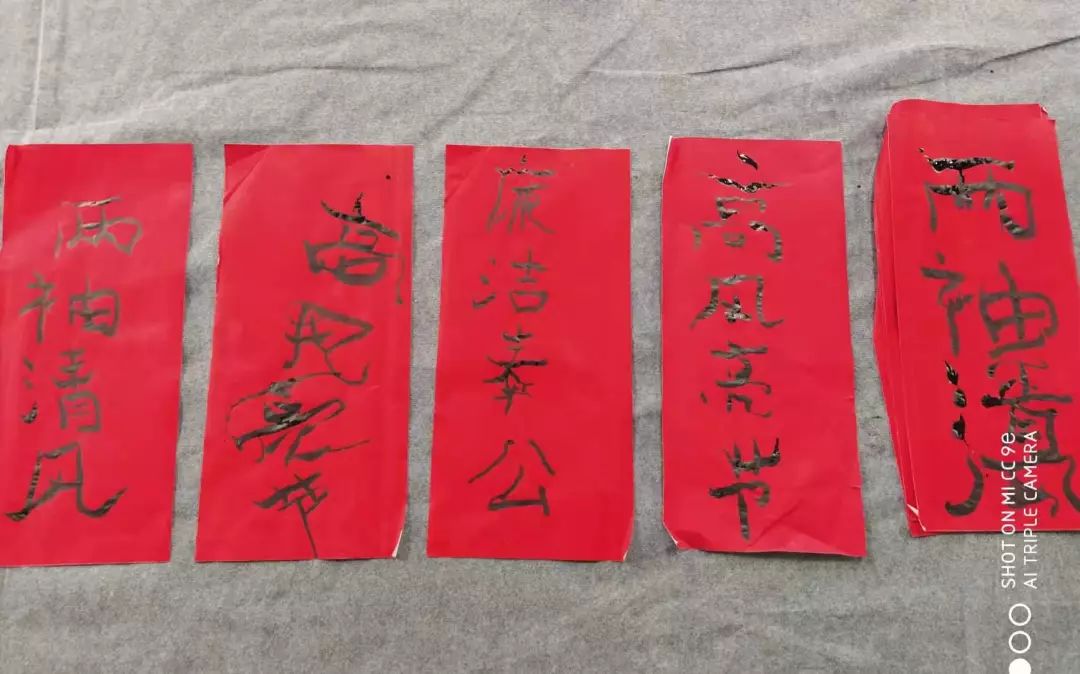 两袖清风
高风亮节
廉洁奉公
高风亮
两袖清
SHOT ON MI CC 9e
AI TRIPLE CAMERA